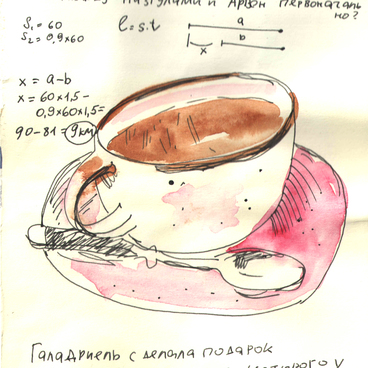 назгулами и Арвен первоначаль
но?
S₁ = 60
S₂ = 0,9×60
l = s·t
a
b
x
x = a-b
x = 60×1,5 -
0,9×60×1,5 =
90-81 = 9км
Галадриель сделала подарок